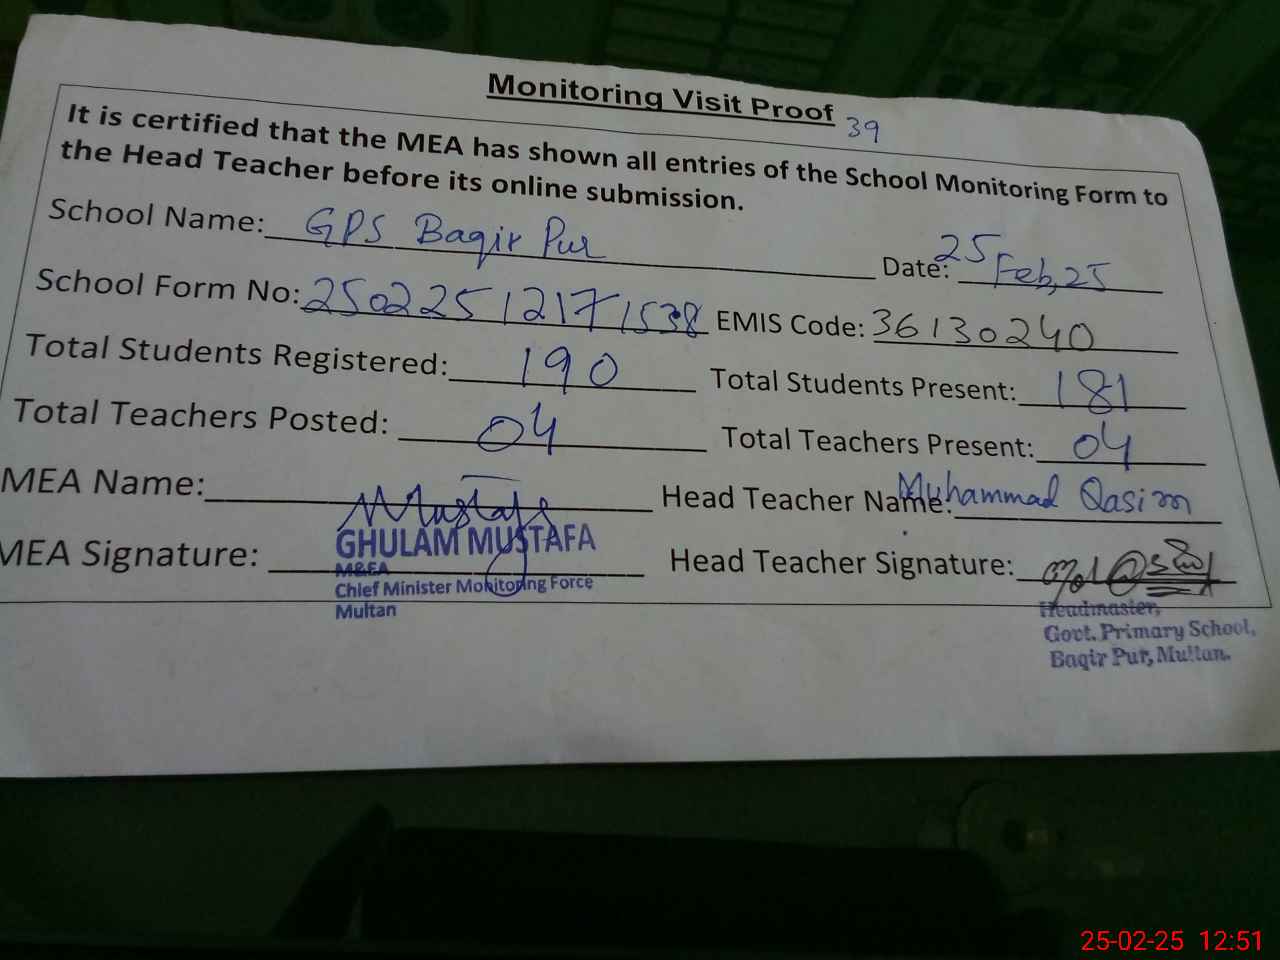 Monitoring Visit Proof 39
It is certified that the MEA has shown all entries of the School Monitoring Form to
the Head Teacher before its online submission.
School Name: GPS Baqir Pur Date: 25 Feb, 25
School Form No: 25022512171538 EMIS Code: 36130240
Total Students Registered: 190 Total Students Present: 181
Total Teachers Posted: 04 Total Teachers Present: 04
MEA Name: Head Teacher Name: Muhammad Qasim
MEA Signature: Mustafa Head Teacher Signature:
GHULAM MUSTAFA
M&EA
Chief Minister Monitoring Force
Multan
Headmaster,
Govt. Primary School,
Baqir Pur, Multan.
25-02-25 12:51